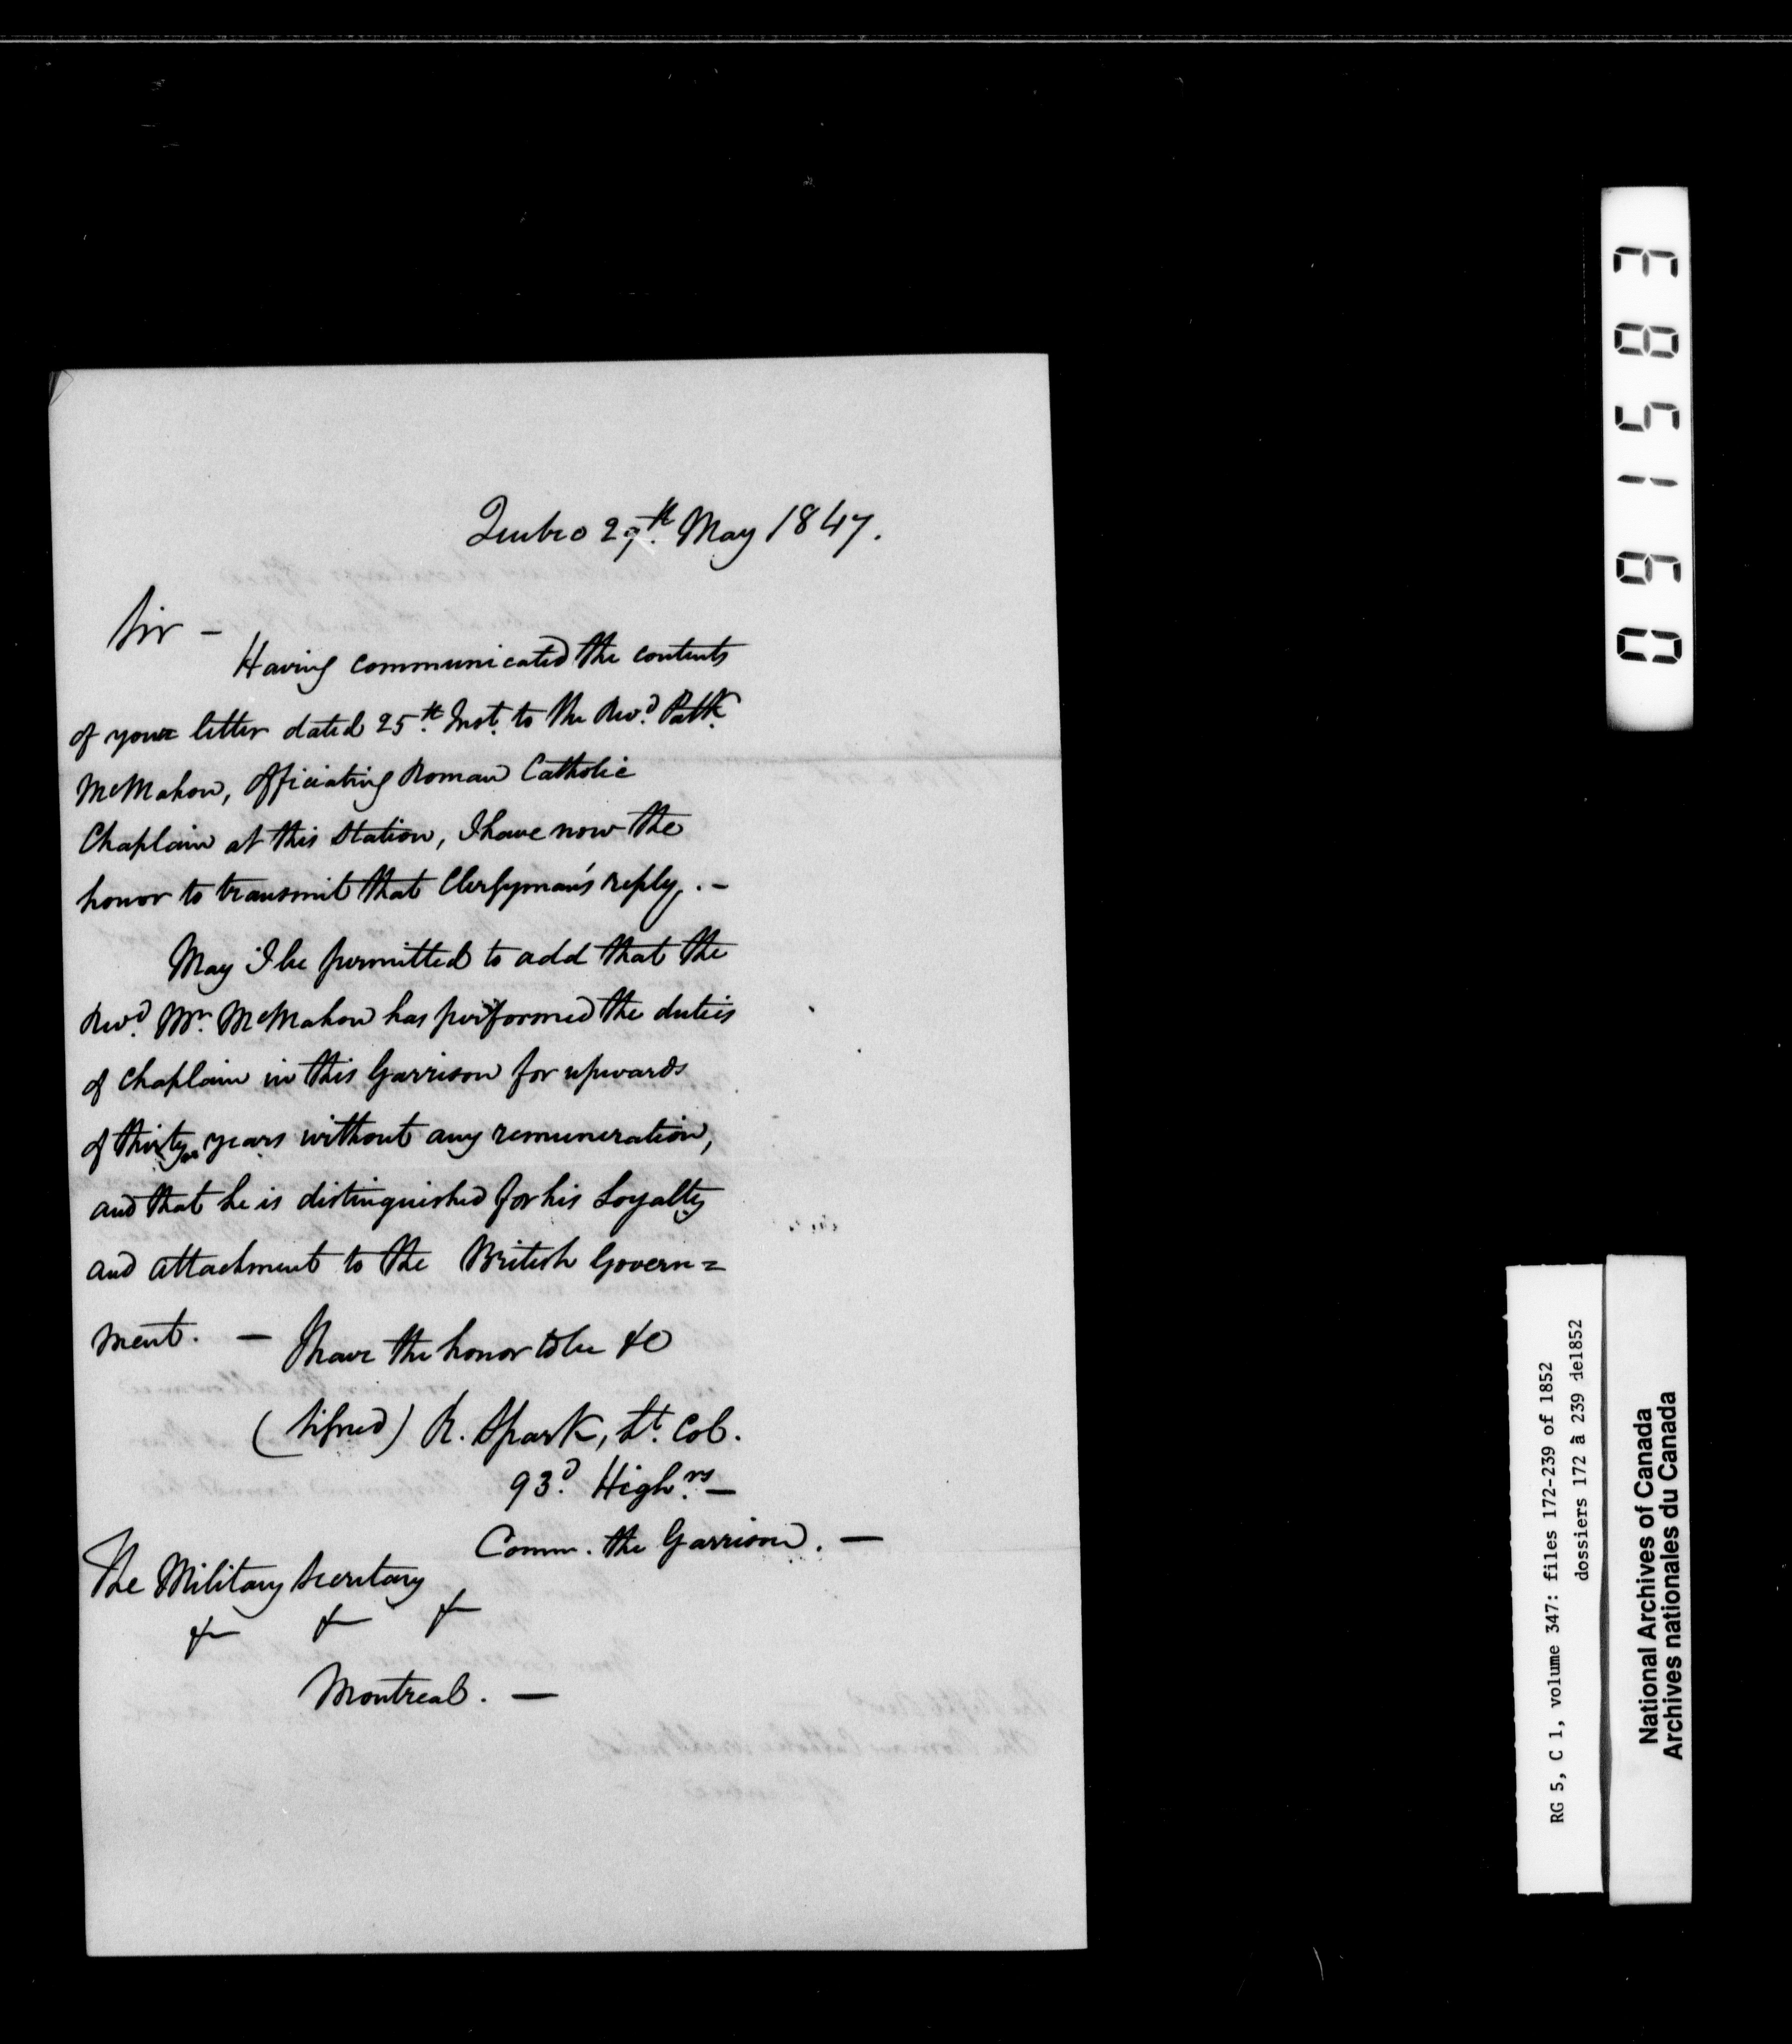 Quebec 29th. May 1847.
Sir -
Having communicated the contents
of your letter dated 25th. Inst. to the Revd. Patk.
McMahon, Officiating Roman Catholic
Chaplain at this Station, I have now the
honor to transmit that Clergyman's reply. -
May I be permitted to add that the
Revd. Mr. McMahon has performed the duties
of Chaplain in this Garrison for upwards
of thirty years without any remuneration,
and that he is distinguished for his Loyalty
and attachment to the British Govern=
ment. — I have the honor to be &c
(signed) R. Spark, Lt. Col.
93d. Highrs. —
Comm. the Garrison. —
The Military Secretary
& & &
Montreal. —
083160
RG 5, C 1, volume 347: files 172-239 of 1852
dossiers 172 à 239 de1852
National Archives of Canada
Archives nationales du Canada